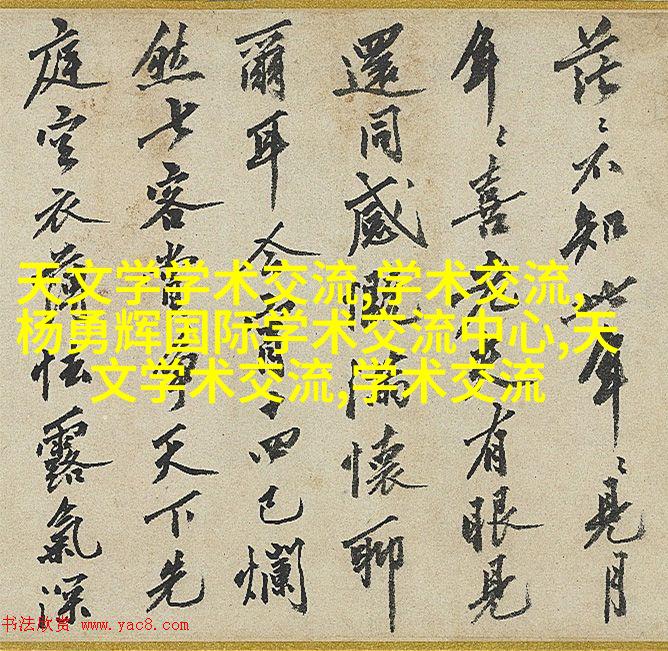 天文学学术交流,学术交流,
杨勇辉国际学术交流中心,天
文学术交流,学术交流
茫々不知年々見月
年々喜有眼見
還同感慨滿懷聊
爾耳今四已爛
然七客當爭天下先
庭空衣薄怯露氣深
书法欣赏 www.yac8.com